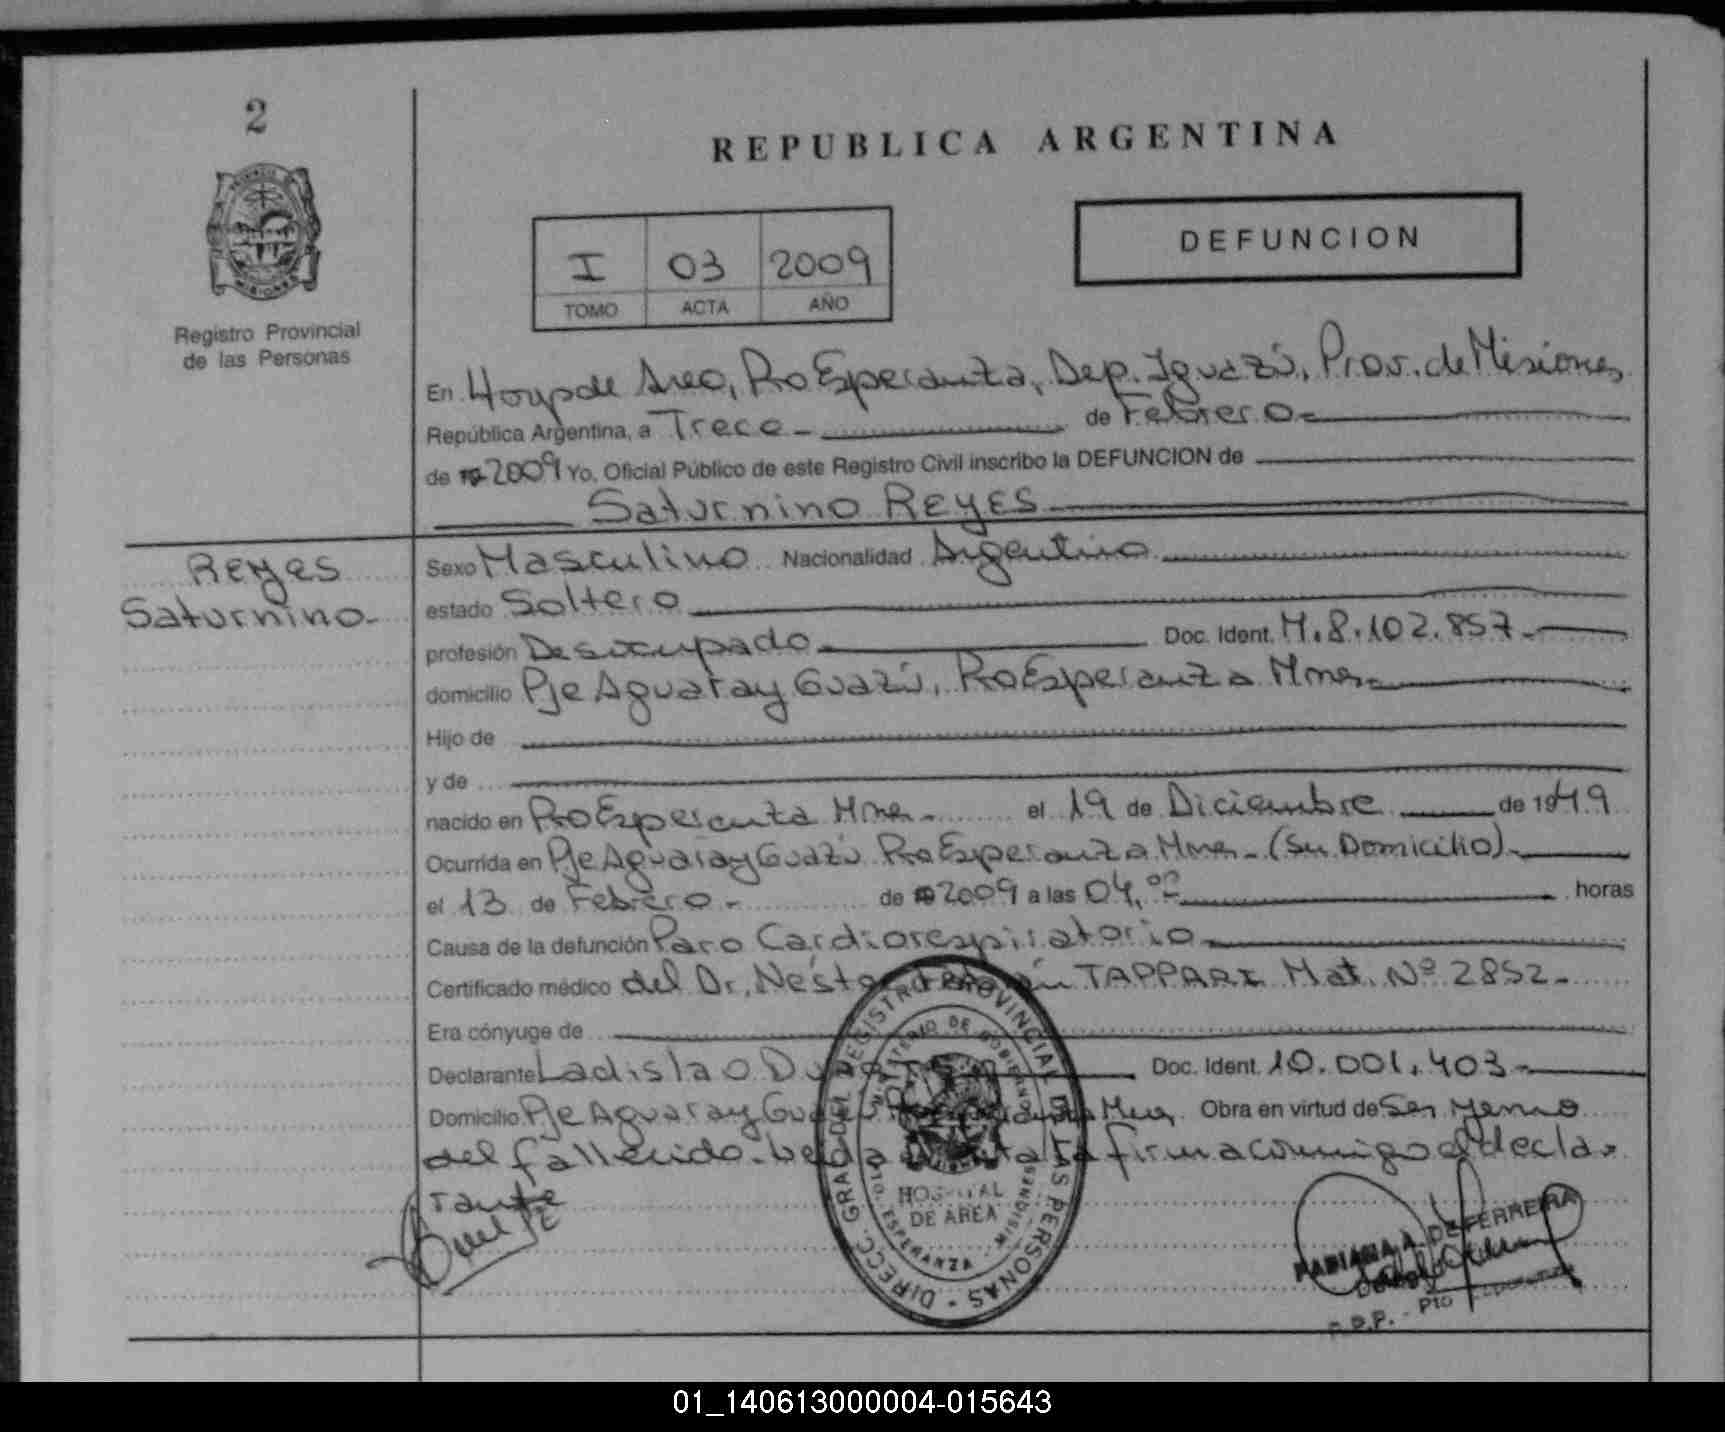 2
REPUBLICA ARGENTINA
I 03 2009
TOMO ACTA AÑO
DEFUNCION
Registro Provincial
de las Personas
En Hosp de Area, Pto Esperanza, Dep. Iguazú, Prov. de Misiones
República Argentina, a Trece - de Febrero -
de 19 2009 Yo, Oficial Público de este Registro Civil inscribo la DEFUNCION de
Saturnino REYES
Reyes
Saturnino -
Sexo Masculino Nacionalidad Argentino
estado Soltero
profesión Desocupado Doc. Ident. M. 8.102.857 -
domicilio Pje Aguaray Guazú, Pto Esperanza Mnes -
Hijo de
y de
nacido en Pto Esperanza Mnes - el 19 de Diciembre de 1949
Ocurrida en Pje Aguaray Guazú Pto Esperanza Mnes - (Su Domicilio) -
el 13 de Febrero - de 19 2009 a las 04,00 horas
Causa de la defunción Paro Cardiorespiratorio
Certificado médico del Dr. Néstor TAPPARI Mat. Nº 2852 -
Era cónyuge de
Declarante Ladislao Doc. Ident. 10.001.403 -
Domicilio Pje Aguaray Mnes Obra en virtud de Ser yerno
del fallecido - firma conmigo el decla-
rante
DIRECC. GRAL. DEL REGISTRO PROVINCIAL DE LAS PERSONAS
MINISTERIO DE GOBIERNO
HOSPITAL
DE AREA
PTO. ESPERANZA MISIONES
A. DE FERREIRA
R.P.P. - Pto
01_140613000004-015643